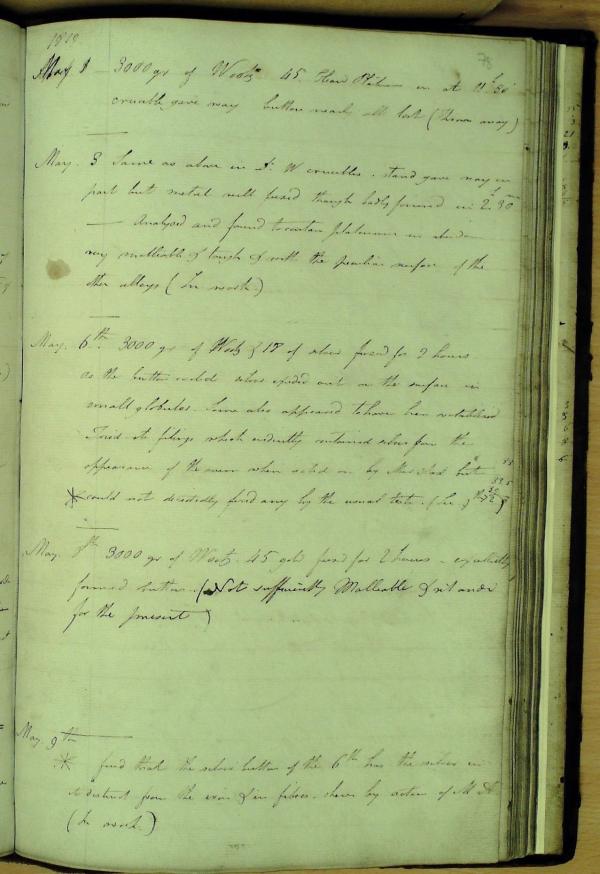 1819
78
May 1 — 3000 gr of Wootz 45 in at 11
crucible gave way button nearly all lost (Thrown away)
May. 3 Same as above in W crucibles. stand gave way in
part but metal well fused though badly formed in 2. 30
— Analysed and found to contain platinum in
very malleable & tough & with the peculiar surface of the
other alloys (In work)
May. 6th. 3000 gr of Wootz & 18 of silver fused for 2 hours
as the button cooled silver exuded out on the surface in
small globules. Some also appeared to have been volatilised
Tried its filings which evidently contained silver from the
appearance of the when acted on by Mur Acid but
* could not decidedly find any by the usual tests. (
May. 8th 3000 gr of Wootz. 45 gold fused for 2 hours —
formed button. (Not sufficiently Malleable & set aside
for the present)
May 9th
* find that the silver button of the 6th has the silver in
it distinct from the iron & in fibres. shewn by action of M A
(In work.)